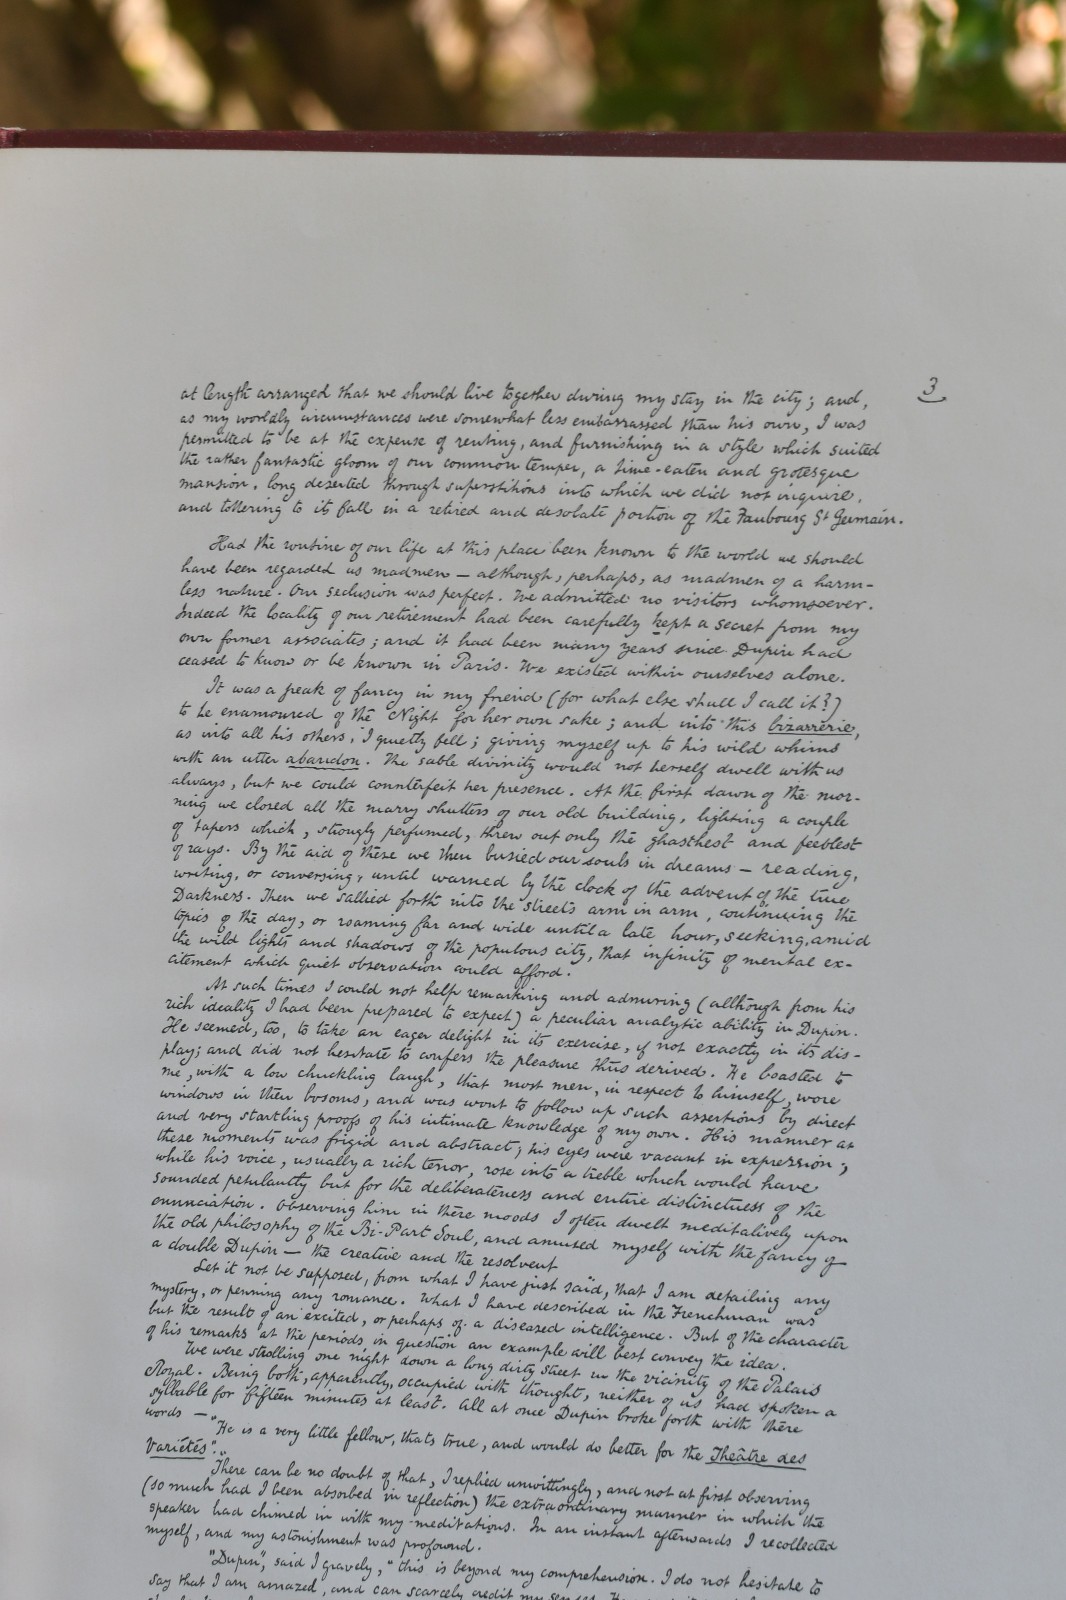 3
at length arranged that we should live together during my stay in the city; and,
as my worldly circumstances were somewhat less embarrassed than his own, I was
permitted to be at the expense of renting, and furnishing in a style which suited
the rather fantastic gloom of our common temper, a time-eaten and grotesque
mansion, long deserted through superstitions into which we did not inquire,
and tottering to its fall in a retired and desolate portion of the Faubourg St Germain.
Had the routine of our life at this place been known to the world we should
have been regarded as madmen — although, perhaps, as madmen of a harm-
less nature. Our seclusion was perfect. We admitted no visitors whomsoever.
Indeed the locality of our retirement had been carefully kept a secret from my
own former associates; and it had been many years since Dupin had
ceased to know or be known in Paris. We existed within ourselves alone.
It was a freak of fancy in my friend (for what else shall I call it?)
to be enamoured of the Night for her own sake; and into this bizarrerie,
as into all his others, I quietly fell; giving myself up to his wild whims
with an utter abandon. The sable divinity would not herself dwell with us
always, but we could counterfeit her presence. At the first dawn of the mor-
ning we closed all the massy shutters of our old building, lighting a couple
of tapers which, strongly perfumed, threw out only the ghastliest and feeblest
of rays. By the aid of these we then busied our souls in dreams — reading,
writing, or conversing, until warned by the clock of the advent of the true
Darkness. Then we sallied forth into the streets arm in arm, continuing the
topics of the day, or roaming far and wide until a late hour, seeking, amid
the wild lights and shadows of the populous city, that infinity of mental ex-
citement which quiet observation would afford.
At such times I could not help remarking and admiring (although from his
rich ideality I had been prepared to expect) a peculiar analytic ability in Dupin.
He seemed, too, to take an eager delight in its exercise, if not exactly in its dis-
play; and did not hesitate to confess the pleasure thus derived. He boasted to
me, with a low chuckling laugh, that most men, in respect to himself, wore
windows in their bosoms, and was wont to follow up such assertions by direct
and very startling proofs of his intimate knowledge of my own. His manner at
these moments was frigid and abstract; his eyes were vacant in expression;
while his voice, usually a rich tenor, rose into a treble which would have
sounded petulantly but for the deliberateness and entire distinctness of the
enunciation. Observing him in these moods I often dwelt meditatively upon
the old philosophy of the Bi-Part Soul, and amused myself with the fancy of
a double Dupin — the creative and the resolvent
Let it not be supposed, from what I have just said, that I am detailing any
mystery, or penning any romance. What I have described in the Frenchman was
but the result of an excited, or perhaps of a diseased intelligence. But of the character
of his remarks at the periods in question an example will best convey the idea.
We were strolling one night down a long dirty street in the vicinity of the Palais
Royal. Being both, apparently, occupied with thought, neither of us had spoken a
syllable for fifteen minutes at least. All at once Dupin broke forth with these
words —
"He is a very little fellow, thats true, and would do better for the Theâtre des
Varietés".
"There can be no doubt of that, I replied unwittingly, and not at first observing
(so much had I been absorbed in reflection) the extraordinary manner in which the
speaker had chimed in with my meditations. In an instant afterwards I recollected
myself, and my astonishment was profound.
"Dupin", said I gravely, "this is beyond my comprehension. I do not hesitate to
say that I am amazed, and can scarcely credit my senses.